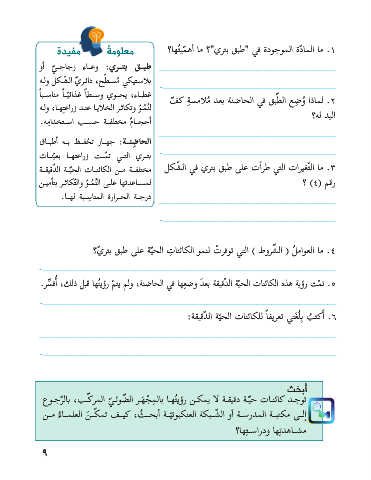 معلومةٌ مفيدة
طبق بتري: وعاء زجاجيّ أو
بلاستيكي مُسطّح، دائريّ الشّكل وله
غطاء، يحوي وسطاً غذائيّاً مناسباً
لنُمُوّ وتكاثر الخلايا عند زراعتها، وله
أحجامٌ مختلفة حسب استخدامِه.
الحاضِنة: جهاز تحُفظ به أطباق
بتري التي تمّت زراعتها بعيّنات
مختلفة من الكائنات الحيّة الدّقيقة
لمساعدتها على النُّمُوّ والتّكاثر بتأمين
درجة الحرارة المناسبة لها.
١. ما المادّة الموجودة في "طبق بتري"؟ ما أهمّيتُها؟
٢. لماذا وُضِع الطّبق في الحاضنة بعد مُلامسةِ كفّ
اليد له؟
٣. ما التّغيرات التي طرأت على طبق بتري في الشّكل
رقم (٤) ؟
٤. ما العواملُ ( الشّروط ) التي توفرتْ لنمو الكائناتِ الحيّة على طبق بتري؟
٥. تمّت رؤية هذه الكائنات الحيّة الدّقيقة بعدَ وضعِها في الحاضنة، ولم يتمّ رؤيتُها قبل ذلك، أُفسِّر.
٦. أكتبُ بِلُغَتي تعريفاً للكائنات الحيّة الدّقيقة:
أبحَث
توجد كائنات حيّة دقيقة لا يمكن رؤيتُها بالمِجْهَر الضّوئيّ المركّب، بالرّجوع
إلى مكتبة المدرسة أو الشّبكة العنكبوتيّة أبحثُ، كيف تمكّنَ العلماءُ من
مشاهدتِها ودراستِها؟
٩